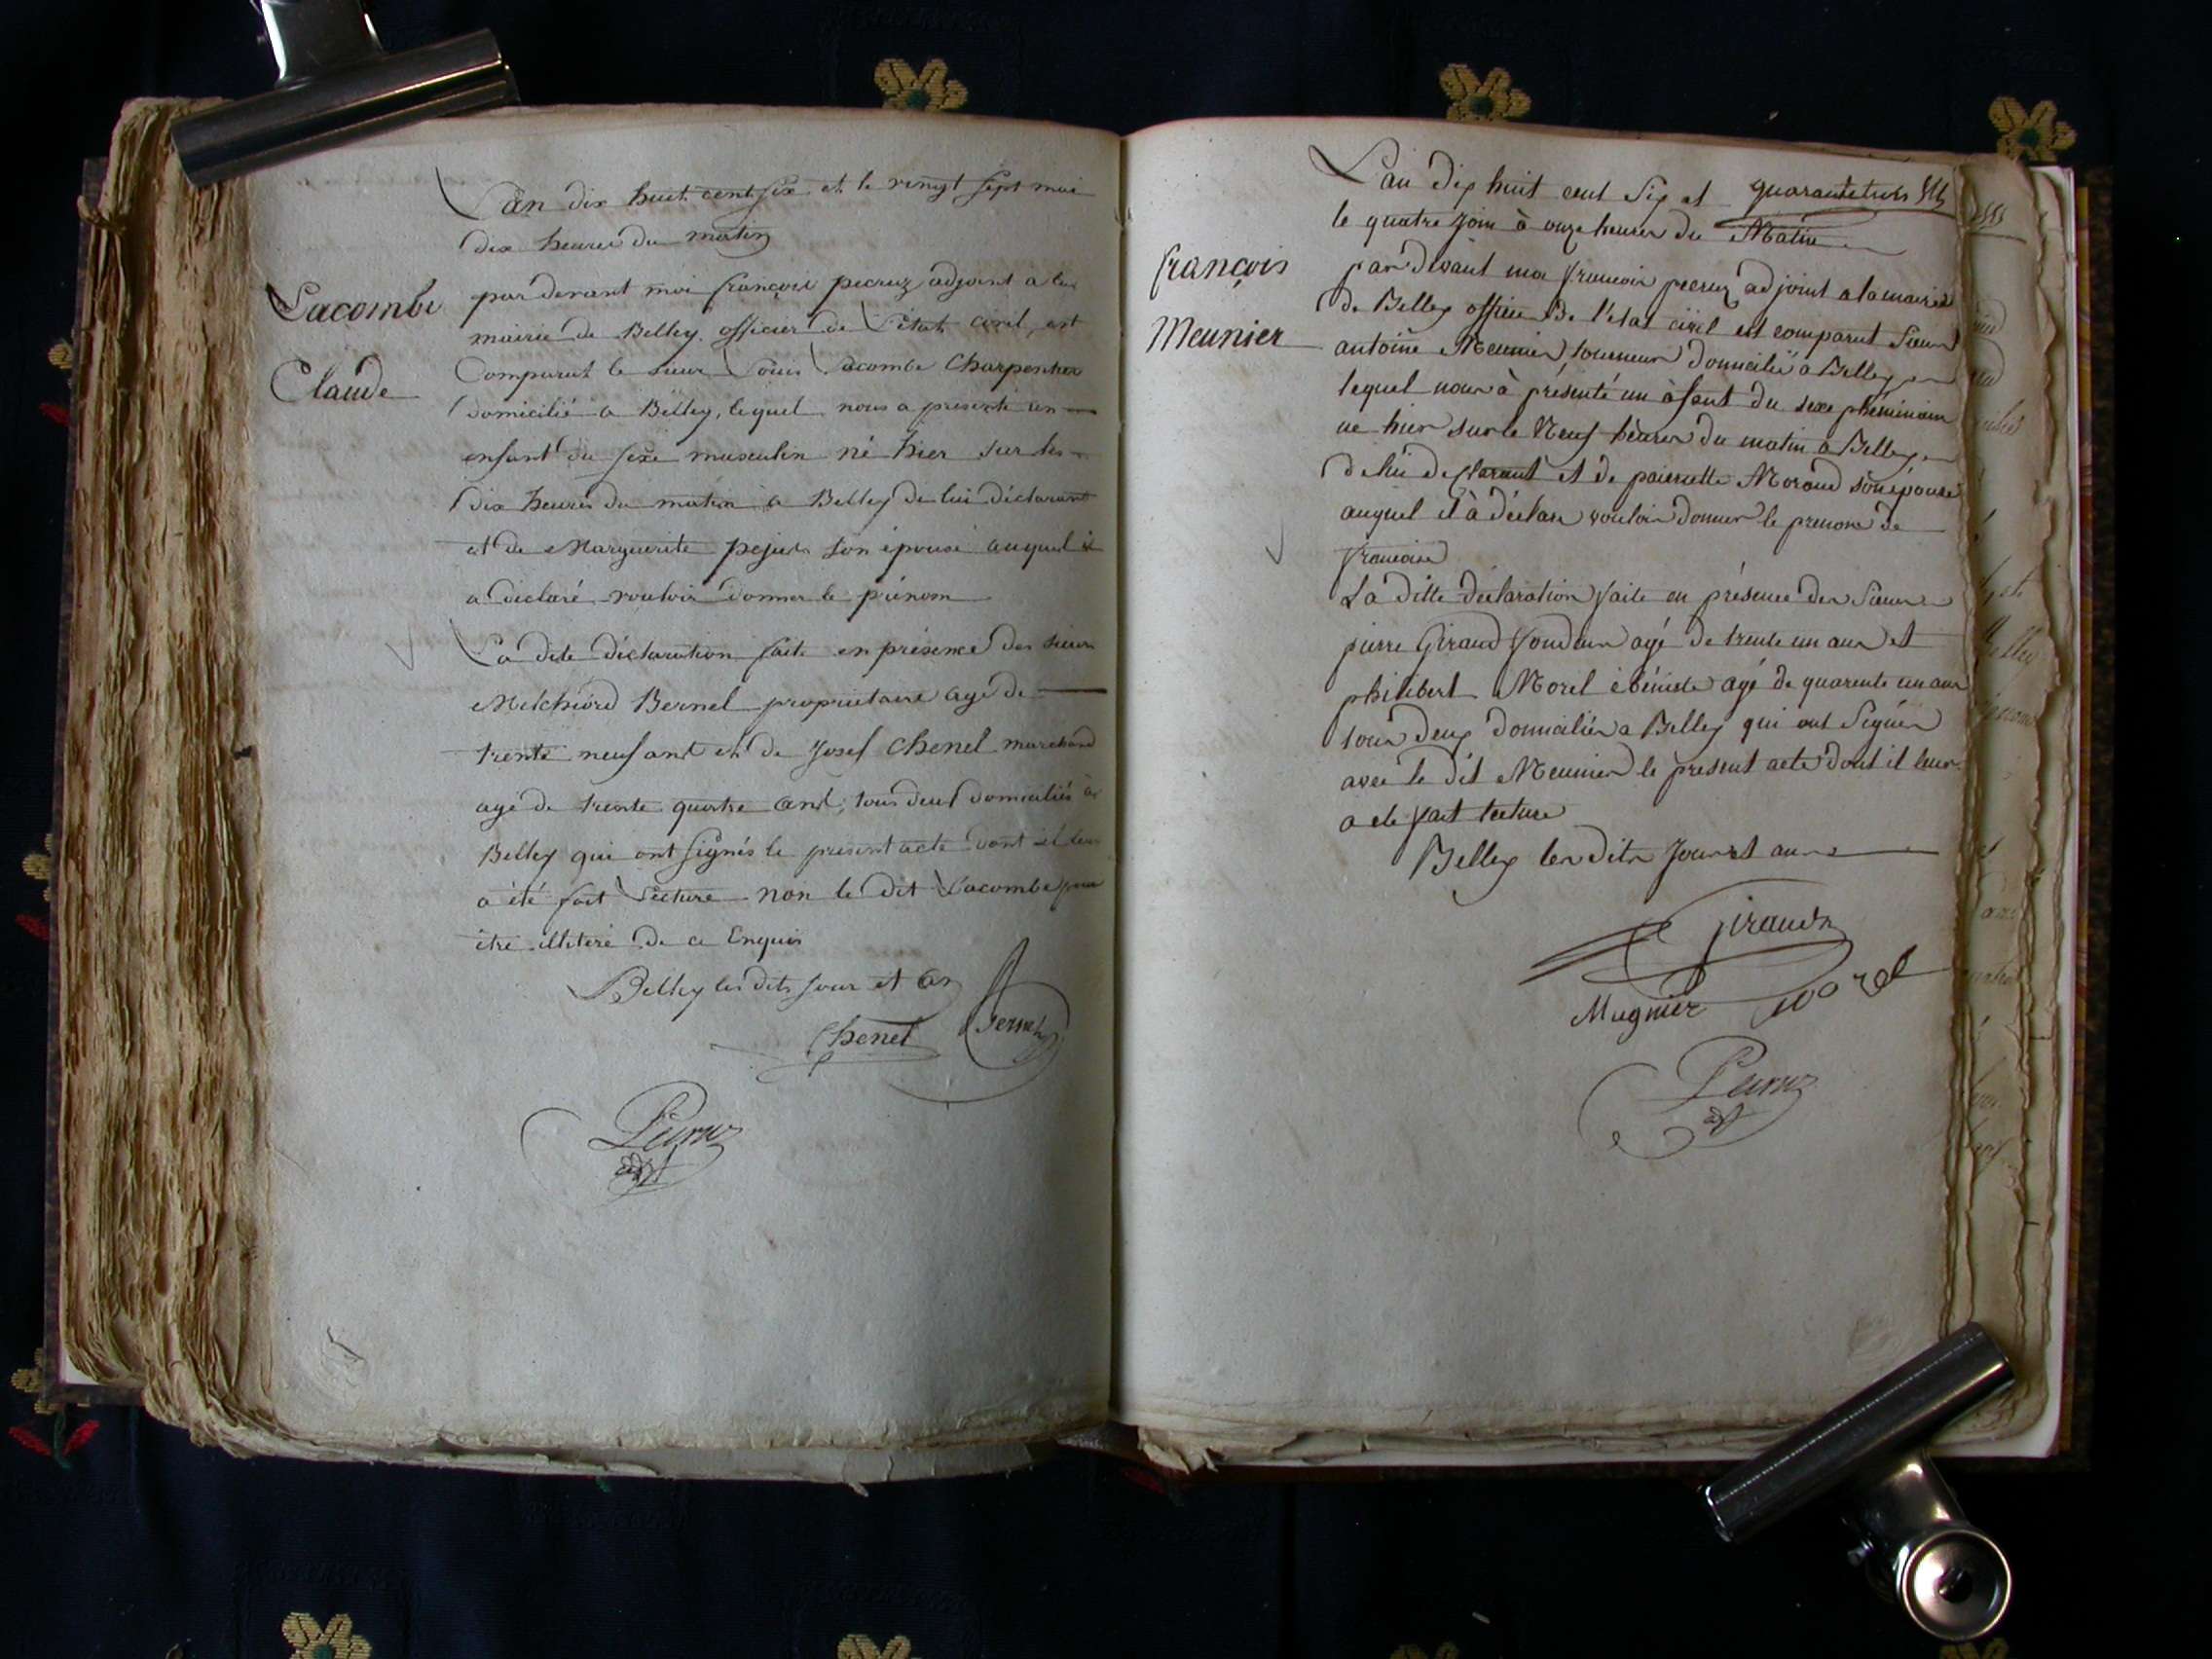 L'an dix huit cent six et le vingt sept mai
dix heures du matin
Lacombe
Claude
par devant moi françois pecruz adjoint a la
mairie de Belley officier de L'état civil, est
Comparut le sieur Louis Lacombe Charpentier
domicilié a Belley, lequel nous a presenté un
enfant du sexe masculin né hier sur les
dix heures du matin a Belley de lui déclarant
et de Marguerite pejus son épouse auquel il
a declaré vouloir donner le prénom
La dite déclaration faite en présence des sieurs
Melchiord Bernel proprietaire agé de
trente neuf ans et de Josef Chenel marchand
agé de trente quatre ans, tous deux domiciliés à
Belley qui ont signés le present acte dont il leur
a été fait Lecture non le dit Lacombe pour
être illiteré de ce Enquis
Belley les dits jour et an
Chenel
Bernel
Pecruz
adjt
L'an dix huit cent six et quarante trois
le quatre join à onze heures du Matin
françois
Meunier
par devant moi francois pecruz adjoint a la mairie
de Belley officier De l'etat civil est comparut sieur
antoine Meunier tourneur domicilié a Belley
lequel nous à présenté un àfant du sexe phéminain
ne hier sur le Neuf heures du matin a Belley
de lui declarant et de paierrette Moraud son épouse
auquel il à déclare vouloir donner le prenom de
francoise
La ditte déclaration faite en présence des sieurs
pierre Giraud fondeur agé de trente un ans et
philibert Morel ébéniste agé de quarente un ans
tous deux domiciliés a Belley qui ont Signés
avec le dit Meunier le présent acte dont il leur
a ete fait lecture
Belley les dits Jour et an
Giraud
Mugnier Morel
Pecruz
adjt